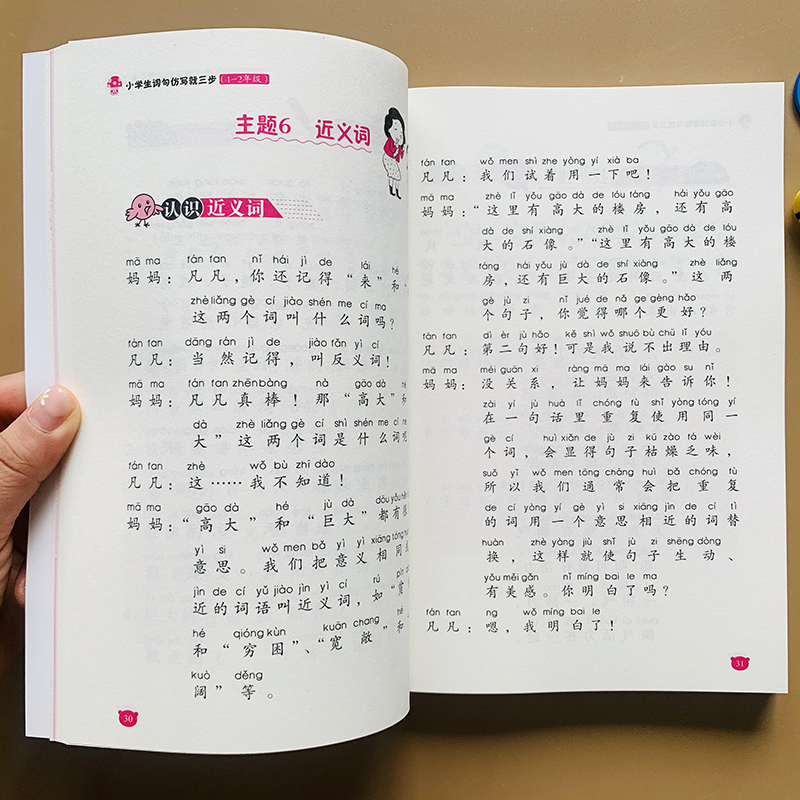 小学生词句仿写就三步（1-2年级）
主题6 近义词
认识近义词
mā ma fán fan nǐ hái jì de lái hé
妈妈：凡凡，你还记得“来”和
zhè liǎng gè cí jiào shén me cí ma
这两个词叫什么词吗？
fán fan dāng rán jì de jiào fǎn yì cí
凡凡：当然记得，叫反义词！
mā ma fán fan zhēn bàng nà gāo dà
妈妈：凡凡真棒！那“高大”和
dà zhè liǎng gè cí shì shén me cí
大”这两个词是什么词呢
fán fan zhè wǒ bù zhī dào
凡凡：这……我不知道！
mā ma gāo dà hé jù dà dōu yǒu
妈妈：“高大”和“巨大”都有
yì si wǒ men bǎ yì yì xiāng tóng
意思。我们把意义相同
jìn de cí yǔ jiào jìn yì cí rú pín
近的词语叫近义词，如“贫
hé qióng kùn kuān chang hé
和“穷困”、“宽敞”和
kuò děng
阔”等。
30
fán fan wǒ men shì zhe yòng yí xià ba
凡凡：我们试着用一下吧！
mā ma zhè lǐ yǒu gāo dà de lóu fáng hái yǒu gāo
妈妈：“这里有高大的楼房，还有高
dà de shí xiàng zhè lǐ yǒu gāo dà de lóu
大的石像。”“这里有高大的楼
fáng hái yǒu jù dà de shí xiàng zhè liǎng
房，还有巨大的石像。”这两
gè jù zi nǐ jué de nǎ ge gèng hǎo
个句子，你觉得哪个更好？
fán fan dì èr jù hǎo kě shì wǒ shuō bù chū lǐ yóu
凡凡：第二句好！可是我说不出理由。
mā ma méi guān xi ràng mā ma lái gào su nǐ
妈妈：没关系，让妈妈来告诉你！
zài yí jù huà lǐ chóng fù shǐ yòng tóng yí
在一句话里重复使用同一
gè cí huì xiǎn de jù zi kū zào fá wèi
个词，会显得句子枯燥乏味，
suǒ yǐ wǒ men tōng cháng huì bǎ chóng fù
所以我们通常会把重复
de cí yòng yí gè yì si xiāng jìn de cí tì
的词用一个意思相近的词替
huàn zhè yàng jiù shǐ jù zi shēng dòng
换，这样就使句子生动、
yǒu měi gǎn nǐ míng bai le ma
有美感。你明白了吗？
fán fan ng wǒ míng bai le
凡凡：嗯，我明白了！
31